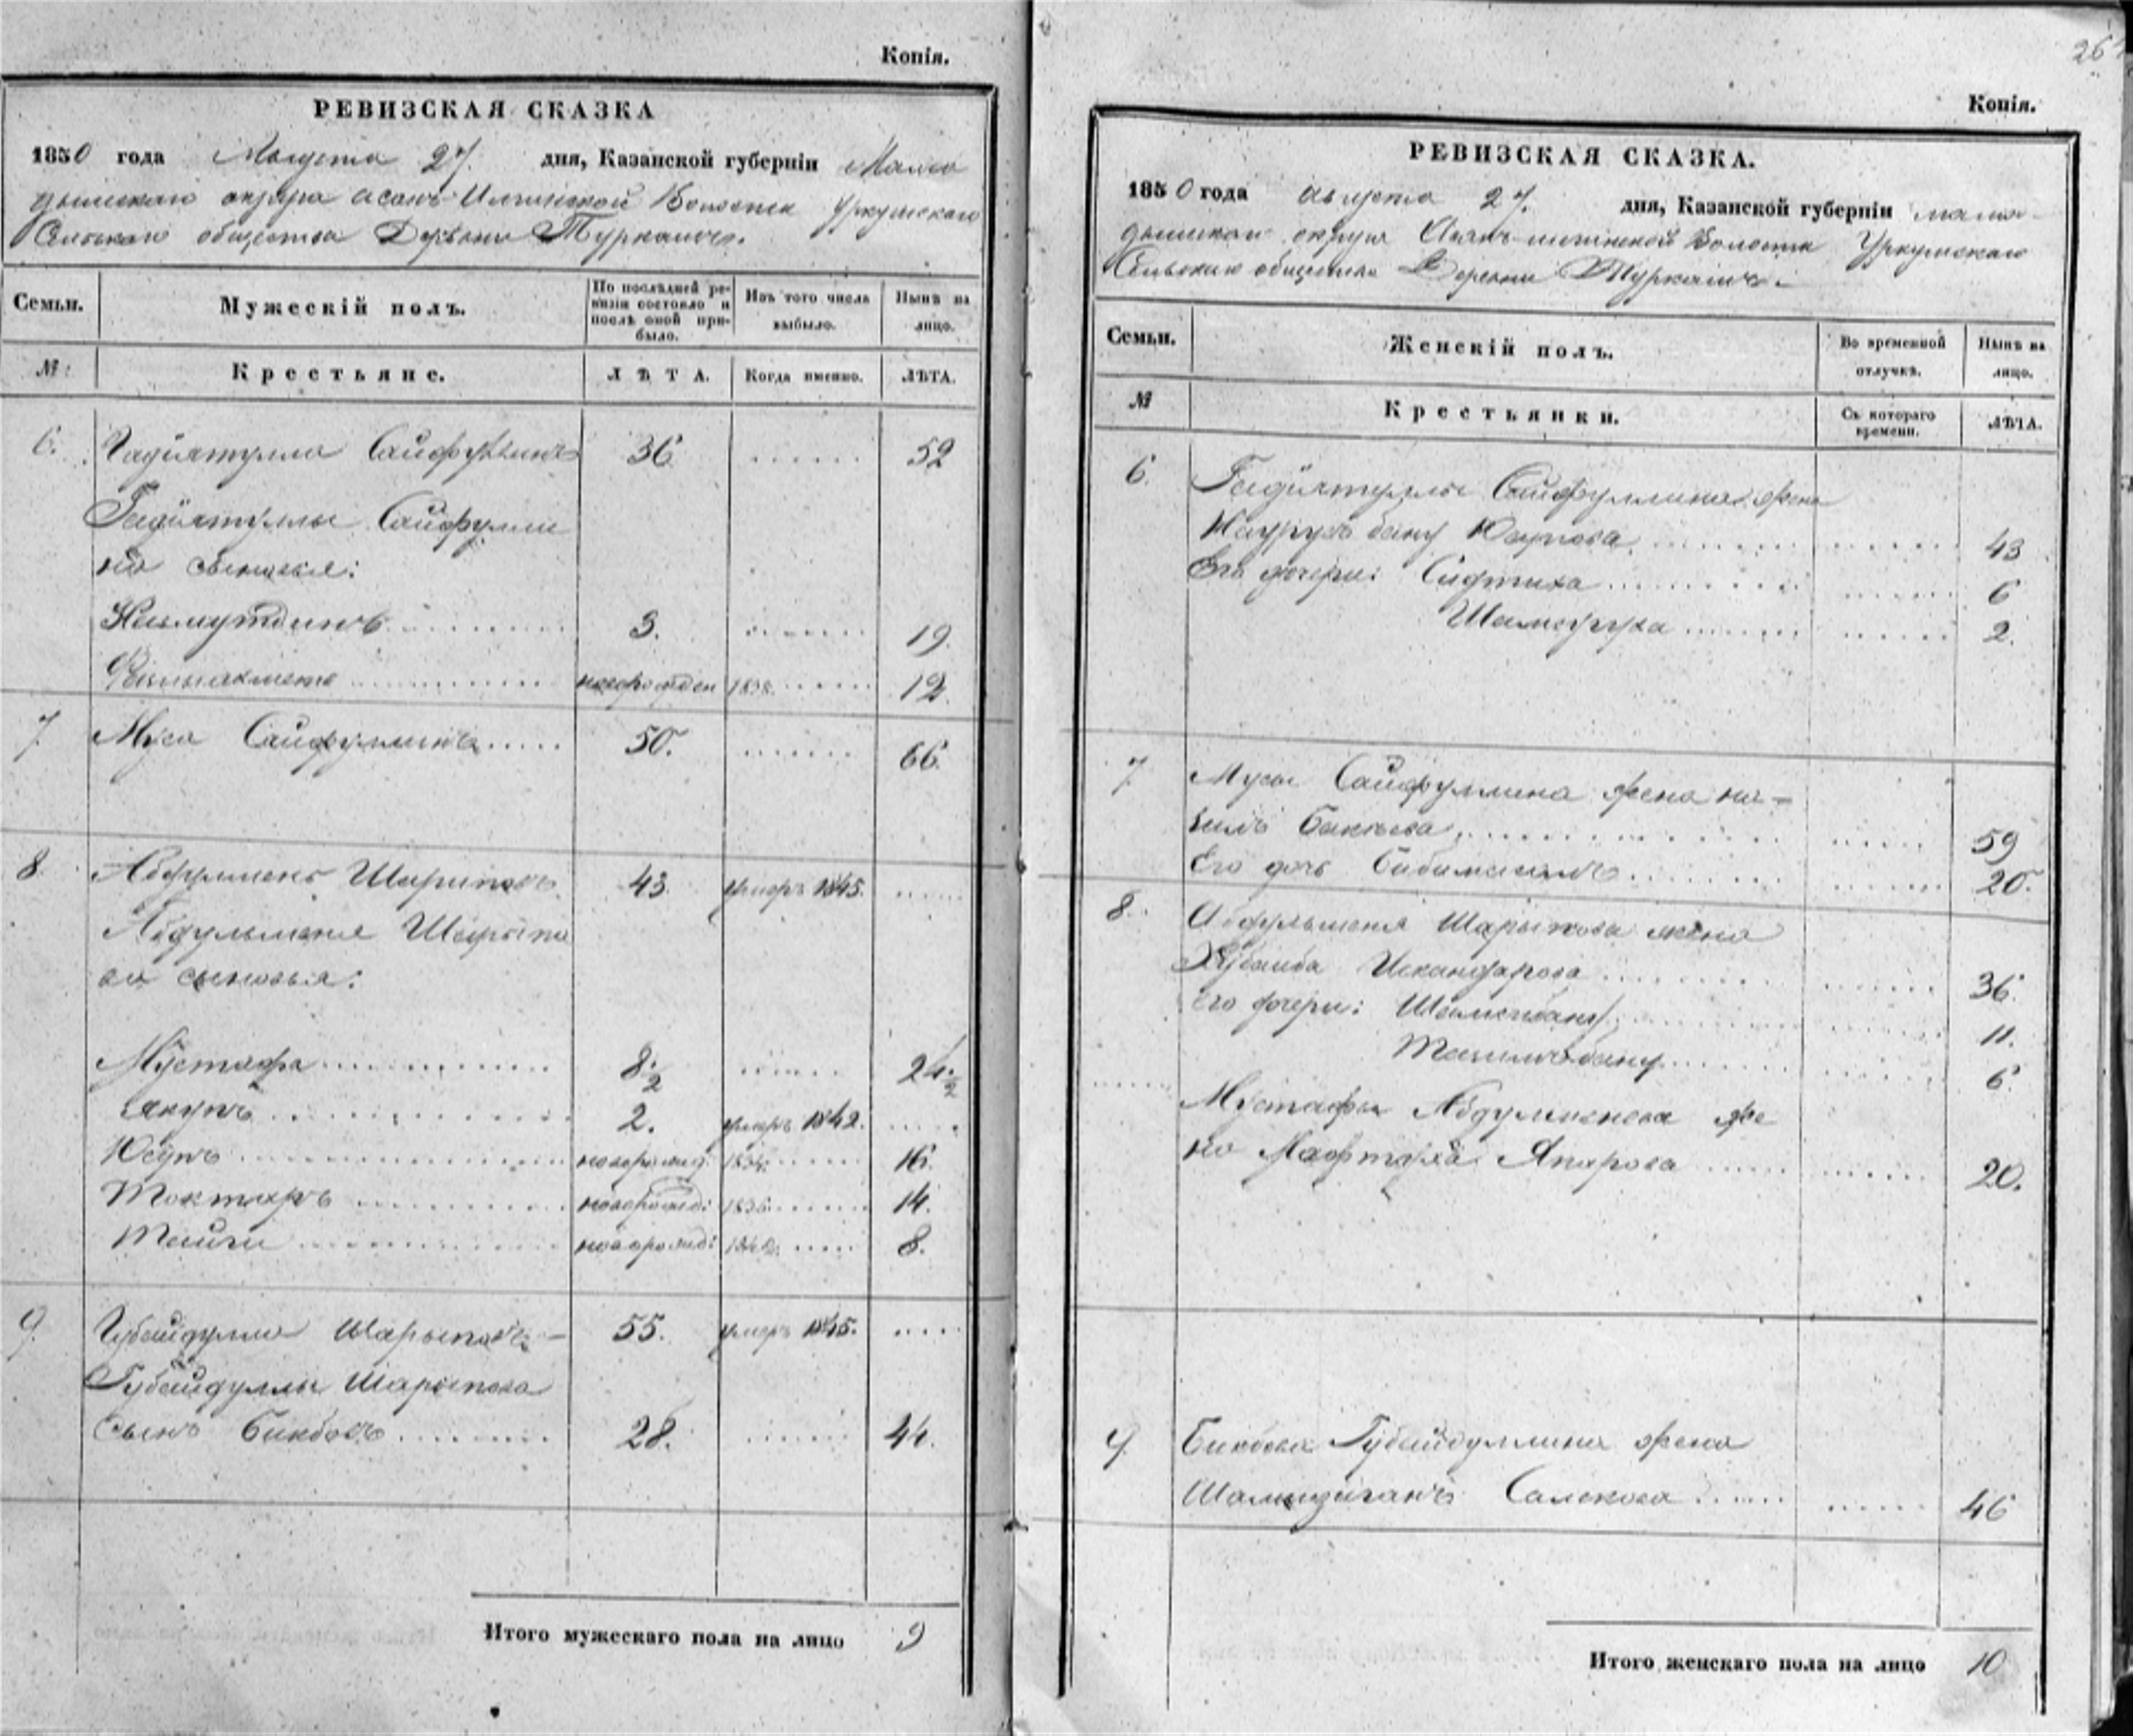 Копія.
РЕВИЗСКАЯ СКАЗКА
1850 года Августа 27. дня, Казанской губерніи Мама
дышскаго округа Асанъ-Илгинской Волости Уркушскаго
Сельскаго общества Деревни Туркашъ.
Семьи. Мужескій полъ. По послѣдней ре-
визіи состояло и
послѣ оной при-
было. Изъ того числа
выбыло. Нынѣ на
лицо.
№ Крестьяне. ЛѢТА. Когда именно. ЛѢТА.
6. Гадіятулла Сайфуллинъ 36 52
Гадіятуллы Сайфулли
на сыновья:
3. 19.
новорожден 1838 12
7 Муса Сайфуллинъ 50. 66.
8. Абдулменъ Шариповъ 43. умеръ 1845.
Абдульменя Шарыпо
ва сыновья:
Мустафа 8 1/2 24 1/2
Якупъ 2. умеръ 1842.
Юсупъ новорожд. 1834 16.
Токтаръ новорожд: 1836 14.
новорожд: 1842 8.
9. Губайдулла Шарыповъ 55. умеръ 1845.
Губайдуллы Шарыпова
сынъ Бикбовъ 28. 44.
Итого мужескаго пола на лицо 9
26
Копія.
РЕВИЗСКАЯ СКАЗКА.
1850 года августа 27. дня, Казанской губерніи мама-
дышскаго округа Асанъ-илгинской Волости Уркушскаго
Сельскаго общества Деревни Туркашъ.
Семьи. Женскій полъ. Во временной
отлучкѣ. Нынѣ на
лицо.
№ Крестьянки. Съ котораго
времени. ЛѢТА.
6. Гадіятуллы Сайфуллина жена
Наурузъ бану Юсупова 43
Его дочери: 6
2.
7 Мусы Сайфуллина жена на-
59
Его дочь 20.
8. Абдульменя Шарыпова жена
Хубайба Искандарова 36.
Его дочери: Шамсибану 11.
6.
Мустафы Абдулменева же
на Мафтуха Япарова 20.
9. Бикбова Губайдуллина жена
46
Итого женскаго пола на лицо 10